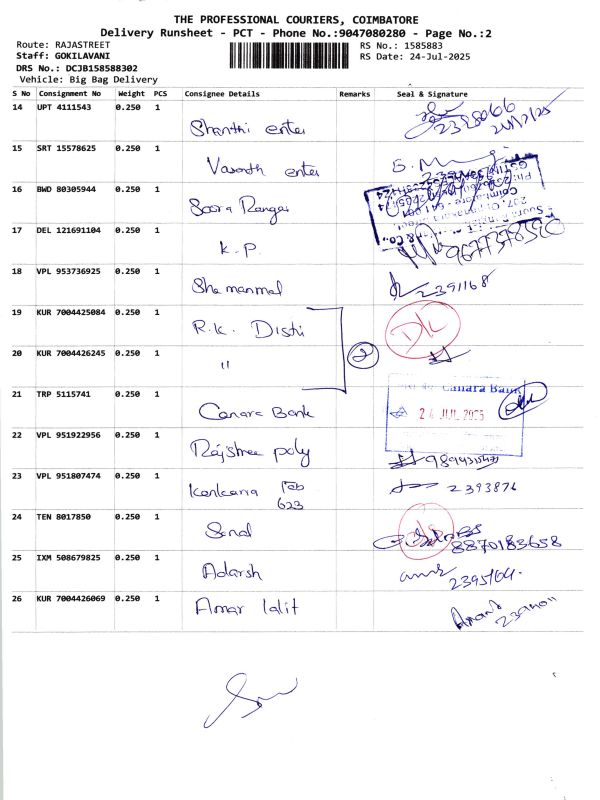 THE PROFESSIONAL COURIERS, COIMBATORE
Delivery Runsheet - PCT - Phone No.:9047080280 - Page No.:2
Route: RAJASTREET
Staff: GOKILAVANI
DRS No.: DCJB158588302
Vehicle: Big Bag Delivery
RS No.: 1585883
RS Date: 24-Jul-2025
S No Consignment No Weight PCS Consignee Details Remarks Seal & Signature
14 UPT 4111543 0.250 1 Shanthi enter
15 SRT 15578625 0.250 1 Vasanth enter
16 BWD 80305944 0.250 1 Soora Ranges
17 DEL 121691104 0.250 1 K.P.
18 VPL 953736925 0.250 1 Shamanmal 2391168
19 KUR 7004425084 0.250 1 R.K. Distri
20 KUR 7004426245 0.250 1 " 2
21 TRP 5115741 0.250 1 Canara Bank
Canara Bank
24 JUL 2025
22 VPL 951922956 0.250 1 Rajshree poly
23 VPL 951807474 0.250 1 Kankaria Feb 2393876
623
24 TEN 8017850 0.250 1 Sonal 8870183658
25 IXM 508679825 0.250 1 Adarsh 2395164
26 KUR 7004426069 0.250 1 Amar lalit